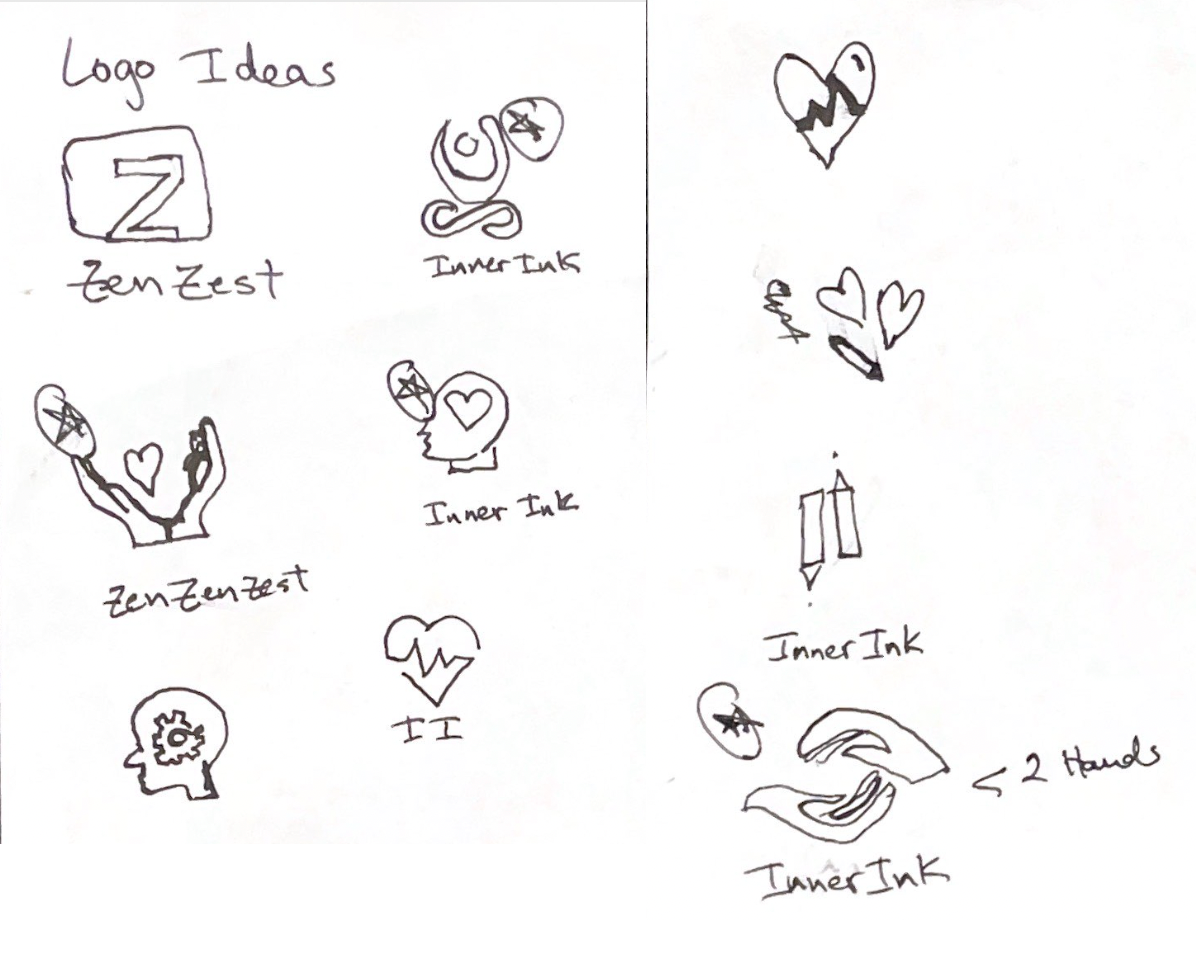 Logo Ideas
Z
Zen Zest
Inner Ink
Inner Ink
ZenZenzest
II
Inner Ink
< 2 Hands
Inner Ink